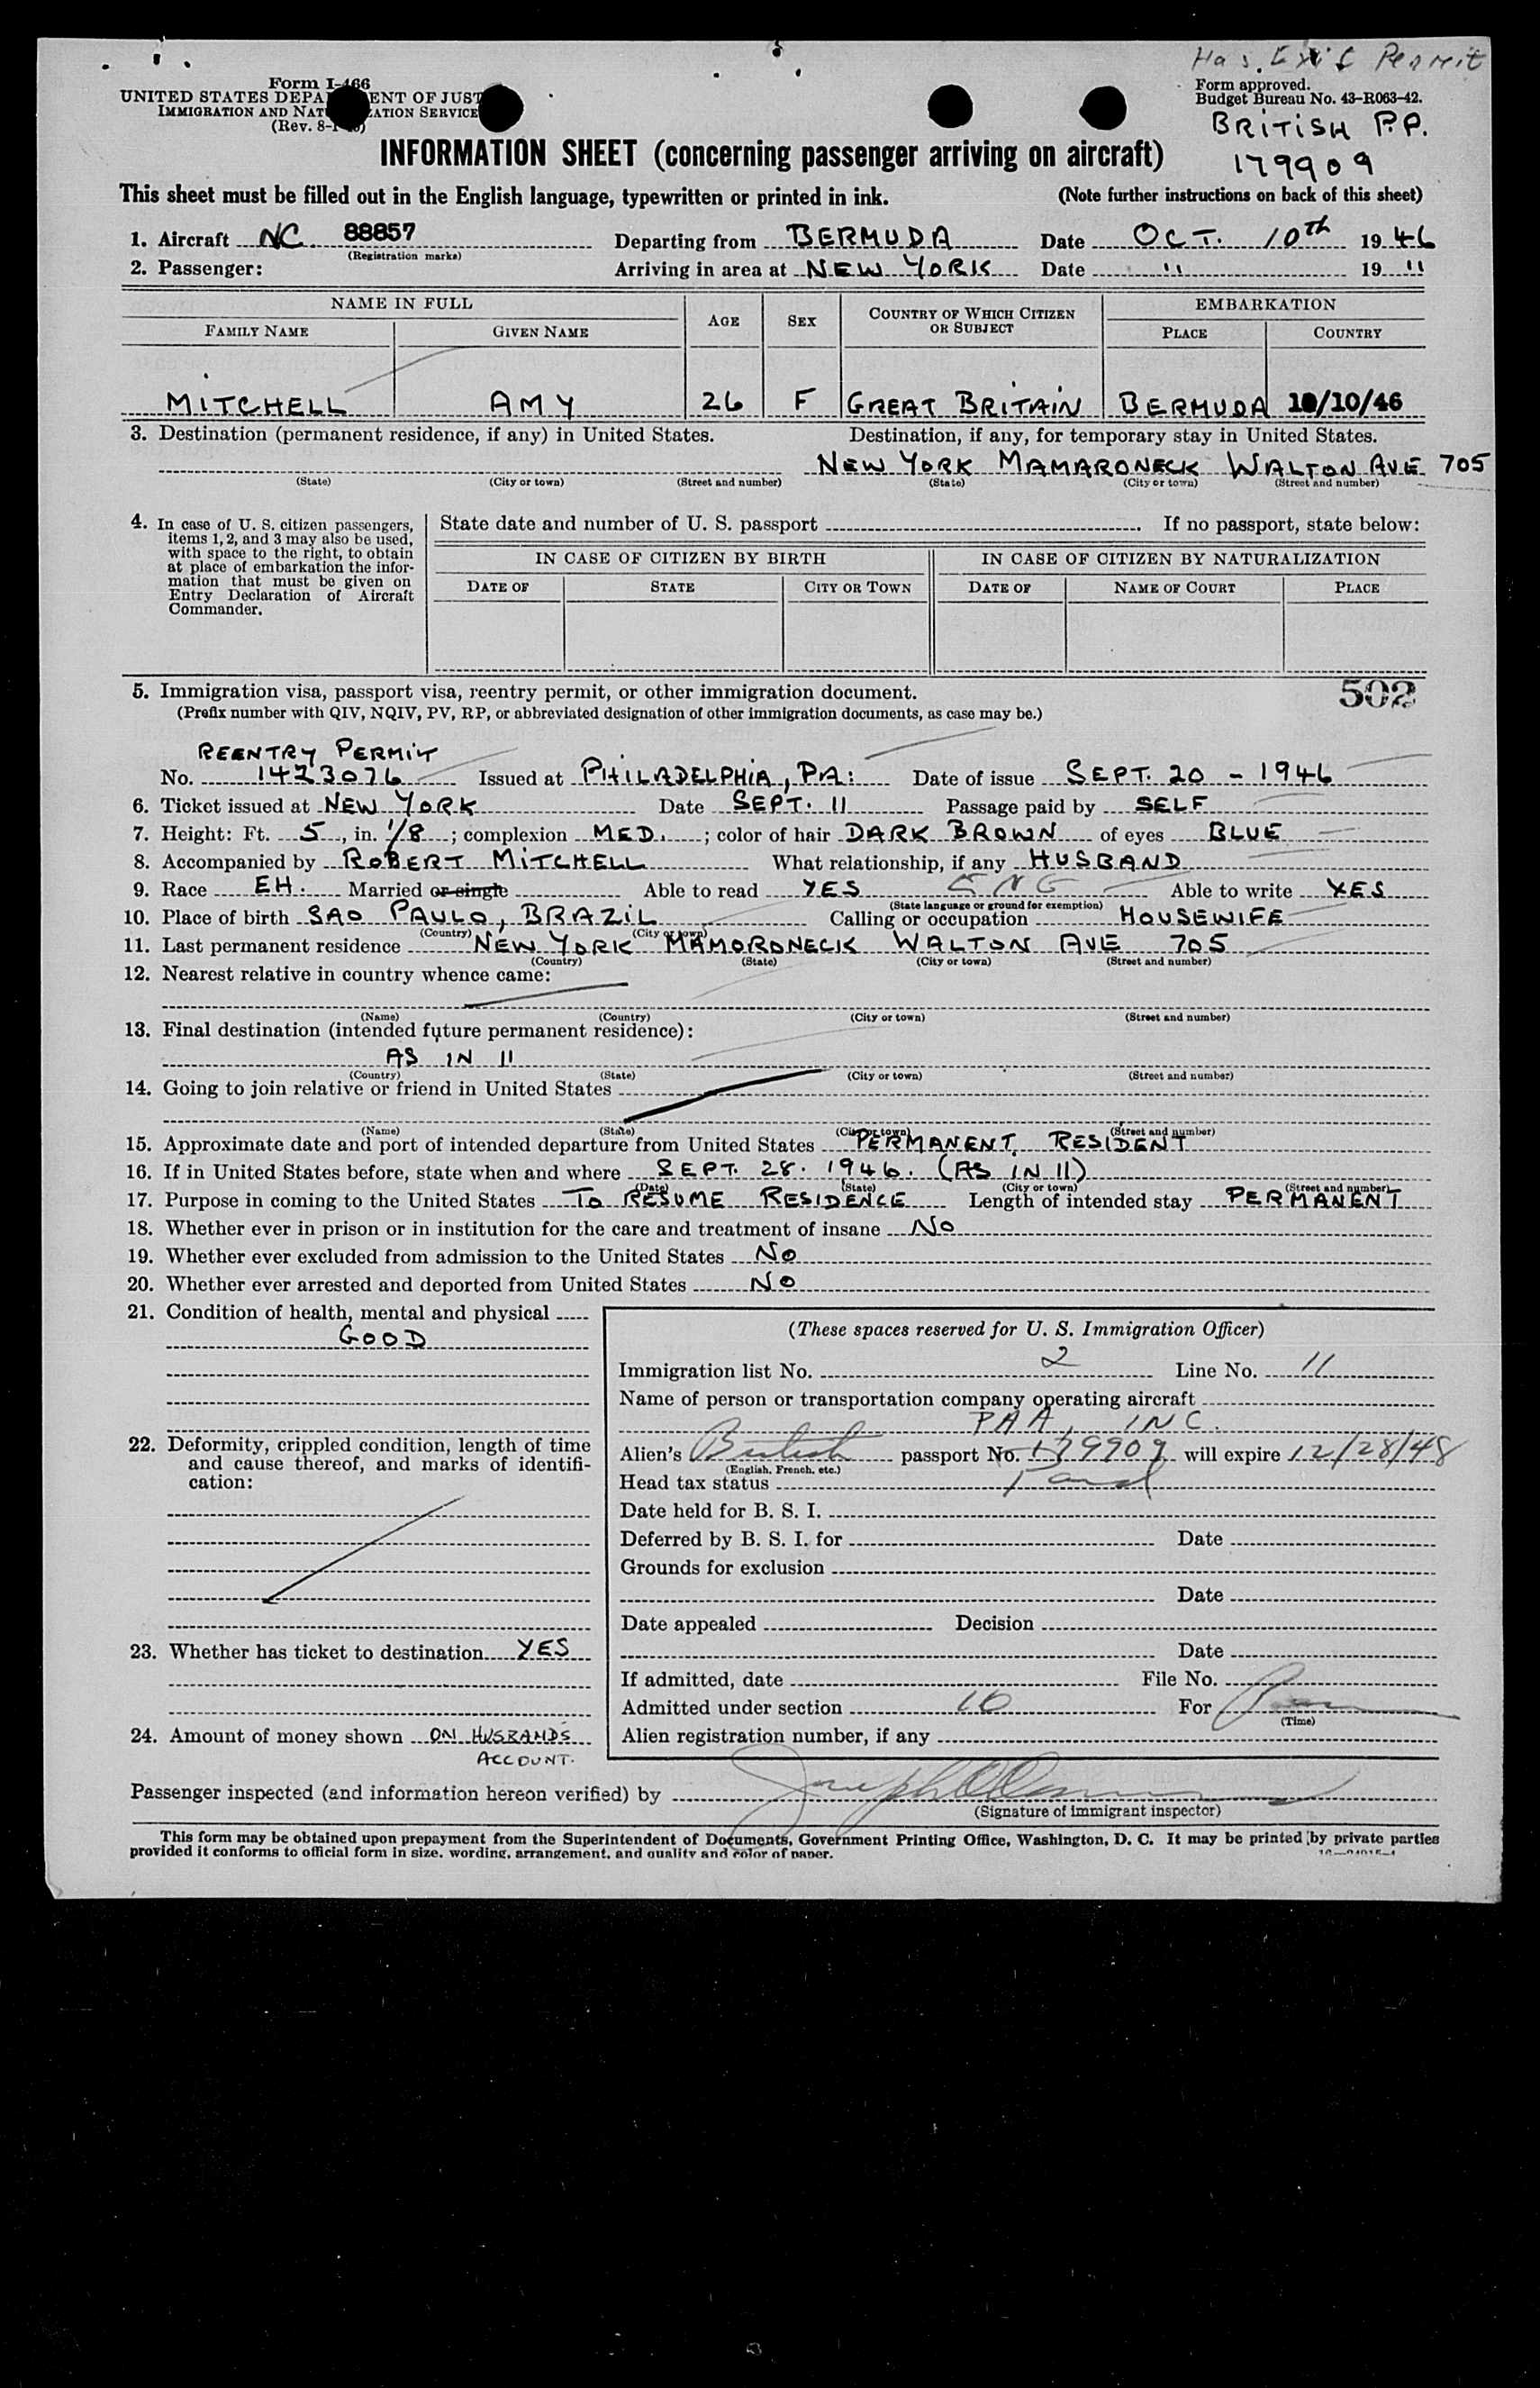 Has Exit Permit
Form I-466
UNITED STATES DEPA ENT OF JUST
IMMIGRATION AND NAT ATION SERVICE
(Rev. 8-1- )
Form approved.
Budget Bureau No. 43-R063-42.
BRITISH P.P.
179909
INFORMATION SHEET (concerning passenger arriving on aircraft)
This sheet must be filled out in the English language, typewritten or printed in ink. (Note further instructions on back of this sheet)
1. Aircraft NC 88857 Departing from BERMUDA Date OCT. 10th 1946
(Registration marks)
2. Passenger: Arriving in area at NEW YORK Date " 19 "
NAME IN FULL AGE SEX COUNTRY OF WHICH CITIZEN OR SUBJECT EMBARKATION
FAMILY NAME GIVEN NAME PLACE COUNTRY
MITCHELL AMY 26 F GREAT BRITAIN BERMUDA 10/10/46
3. Destination (permanent residence, if any) in United States. Destination, if any, for temporary stay in United States.
NEW YORK MAMARONECK WALTON AVE 705
(State) (City or town) (Street and number) (State) (City or town) (Street and number)
4. In case of U. S. citizen passengers,
items 1, 2, and 3 may also be used,
with space to the right, to obtain
at place of embarkation the infor-
mation that must be given on
Entry Declaration of Aircraft
Commander.
State date and number of U. S. passport . If no passport, state below:
IN CASE OF CITIZEN BY BIRTH IN CASE OF CITIZEN BY NATURALIZATION
DATE OF STATE CITY OR TOWN DATE OF NAME OF COURT PLACE
5. Immigration visa, passport visa, reentry permit, or other immigration document. 502
(Prefix number with QIV, NQIV, PV, RP, or abbreviated designation of other immigration documents, as case may be.)
REENTRY PERMIT
No. 1423076 Issued at PHILADELPHIA, PA: Date of issue SEPT. 20 - 1946
6. Ticket issued at NEW YORK Date SEPT. 11 Passage paid by SELF
7. Height: Ft. 5, in. 1/8; complexion MED.; color of hair DARK BROWN of eyes BLUE
8. Accompanied by ROBERT MITCHELL What relationship, if any HUSBAND
9. Race EH. Married or single Able to read YES ENG Able to write YES
(State language or ground for exemption)
10. Place of birth SAO PAULO, BRAZIL Calling or occupation HOUSEWIFE
(Country) (City or town)
11. Last permanent residence NEW YORK MAMORONECK WALTON AVE 705
(Country) (State) (City or town) (Street and number)
12. Nearest relative in country whence came:
(Name) (Country) (City or town) (Street and number)
13. Final destination (intended future permanent residence):
AS IN 11
(Country) (State) (City or town) (Street and number)
14. Going to join relative or friend in United States
(Name) (State) (City or town) (Street and number)
15. Approximate date and port of intended departure from United States PERMANENT RESIDENT
16. If in United States before, state when and where SEPT. 28. 1946. (AS IN 11)
(Date) (State) (City or town) (Street and number)
17. Purpose in coming to the United States TO RESUME RESIDENCE Length of intended stay PERMANENT
18. Whether ever in prison or in institution for the care and treatment of insane NO
19. Whether ever excluded from admission to the United States NO
20. Whether ever arrested and deported from United States NO
21. Condition of health, mental and physical
GOOD
22. Deformity, crippled condition, length of time
and cause thereof, and marks of identifi-
cation:
23. Whether has ticket to destination YES
24. Amount of money shown ON HUSBANDS
ACCOUNT.
(These spaces reserved for U. S. Immigration Officer)
Immigration list No. 2 Line No. 11
Name of person or transportation company operating aircraft
PAA, INC.
Alien's British passport No. 179909 will expire 12/28/48
(English, French, etc.)
Head tax status
Date held for B. S. I.
Deferred by B. S. I. for Date
Grounds for exclusion
Date
Date appealed Decision
Date
If admitted, date File No.
Admitted under section For
(Time)
Alien registration number, if any
Passenger inspected (and information hereon verified) by
(Signature of immigrant inspector)
This form may be obtained upon prepayment from the Superintendent of Documents, Government Printing Office, Washington, D. C. It may be printed by private parties
provided it conforms to official form in size, wording, arrangement, and quality and color of paper.